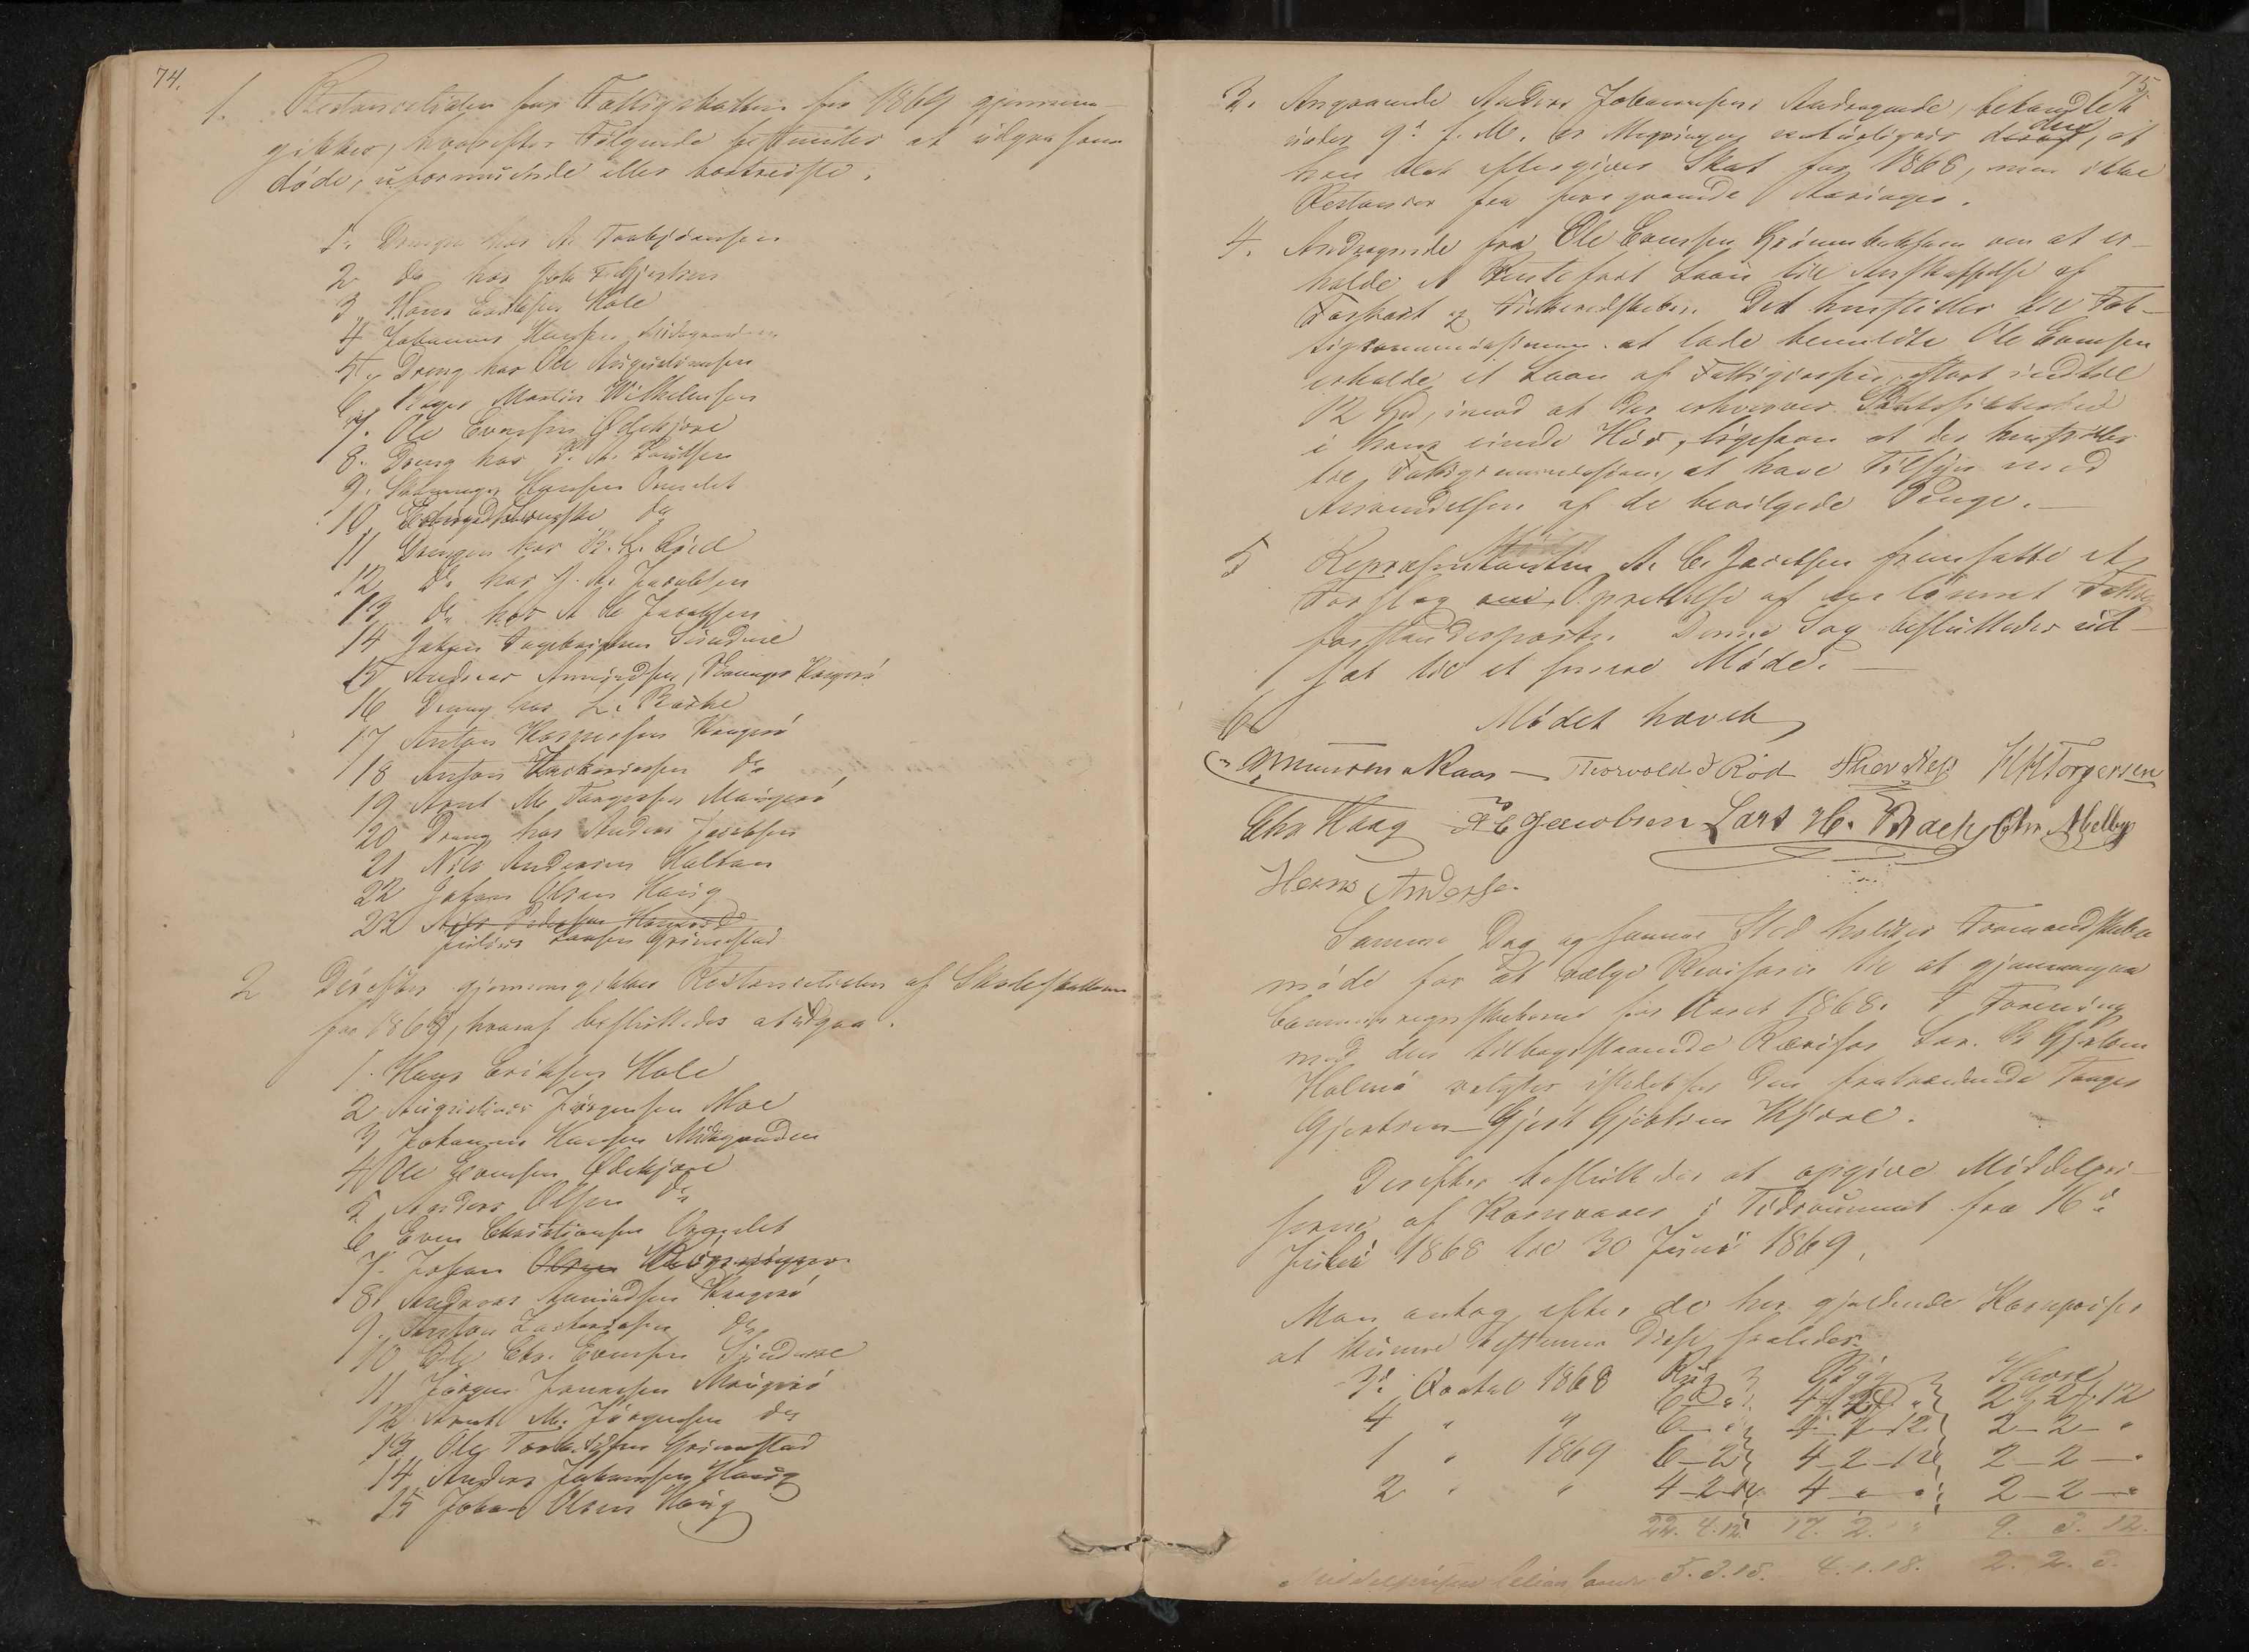 74.
1. Restancelisten for Fattigskatten for 1869 gjennem-
gikkes, hvorefter Følgende besluttedes at udgaa som
døde, uformuende eller bortreiste.
1. Drengen hos A. Torbjørnsen
2 do hos Joh. Gjertsen
3 Hans Eriksen Hole
4 Johannes Hansen Midtgaarden
5. Dreng hos Ole Augustinussen
6. Martin Wilhelmsen
7. Ole Evensen Ødekjære
8. Dreng hos P. A. Poulsen
9. Hansen Ormelet
10. do
11 Drengen hos B. L. Røed
12 do hos J. A. Jacobsen
13 do hos A C Jacobsen
14 Johan Sundene
15 Andreas Amundsen, Kragerø
16 Dreng hos L. Bache
17 Anton Kaspersen Kragerø
18 Anton Zachariassen do
19 Arnt M. Jørgensen Maugerø
20 Dreng hos Anders Jacobsen
21 Nils Andersen Holtan
22 Johan Olsen Haug
23 Pedersen
Julius Larsen Grimestad
2 Derefter gjennemgikkes Restancelisten af Skoleskatten
for 1869, hvoraf besluttedes at udgaa.
1. Hans Eriksen Hole
2 Augustinus Jørgensen Moe
3 Johannes Hansen Midtgaarden
4 Ole Evensen Ødekjære
5 Anders Olsen do
6 Even Christiansen Ormelet
7. Johan Olsen
8. Andreas Amundsen Kragerø
9. Anton Zachariassen do
10 Ole Chr. Evensen Sundene
11 Jørgen Jonassen Maugerø
12 Arnt M. Jørgensen do
13 Ole Grimestad
14 Anders Johannesen Haug
15 Johan Olsen Haug
75
3. Angaaende Anders Johannesens Andragende, behandlet
under 9de f. M. er Meningen naturligvis deraf den, at
han blot eftergives Skat for 1868, men ikke
Restancer fra foregaaende Aaringer.
4. Andragende fra Ole Evensen om at er-
holde et Rentefrit Laan til Anskaffelse af
Farkost og Fiskeredskaber. Det henstilles til Fat-
tigcommissionen at lade bemeldte Ole Evensen
erholde et Laan af Fattigkassen, stort indtil
12 Spd, imod at der erhverves Pantesikkerhed
i hans eiende Huus, ligesom at det henstilles
til Fattigcommissionen, at have Tilsyn med
Anvendelsen af de bevilgede Penge.
5 Repræsentanten A. C. Jacobsen fremsatte et
Forslag om Oprettelse af en lønnet Fattig-
forstanderpost. Denne Sag besluttedes ud-
sat til et senere Møde.
6 Mødet hævet
Maas — Thorvald Rød H H Torgersen
Chr Haag A C Jacobsen Lars H. Bache Chr Melby
Hans Anderse.
Samme Dag og samme Sted holdtes Formandskabs-
møde for at vælge Revisorer til at gjennemgaa
Communeregnskaberne for Aaret 1868. I Forening
med den tilbagestaaende Revisor Lar. B
Holmø valgtes istedetfor den fratrædende Tanges
Gjertsen – Gjert Gjertsen Kjære.
Derefter besluttedes at opgive Middelpri-
serne af Kornvarer i Tidsrummet fra 1ste
Juli 1868 til 30 Juni 1869.
Man antog efter de her gjældende Kornpriser
at kunne bestemme disse saaledes:
Rug Byg Havre
3de Qvartal 1868 6 " " 4 2 " 2 2 12
4 " " 6 – " " 4 – 2 – 12 2 – 2 – "
1 " 1869 6 – 2 4 – 2 – 12 2 – 2 – "
2 " " 4 – 2 – 12 4 – " " 2 – 2 – "
22. 4. 12. 17. 2. " 9. 3. 12.
Middelprisen bliver saaledes 5. 3. 15. 4. 1. 18. 2. 2. 3.